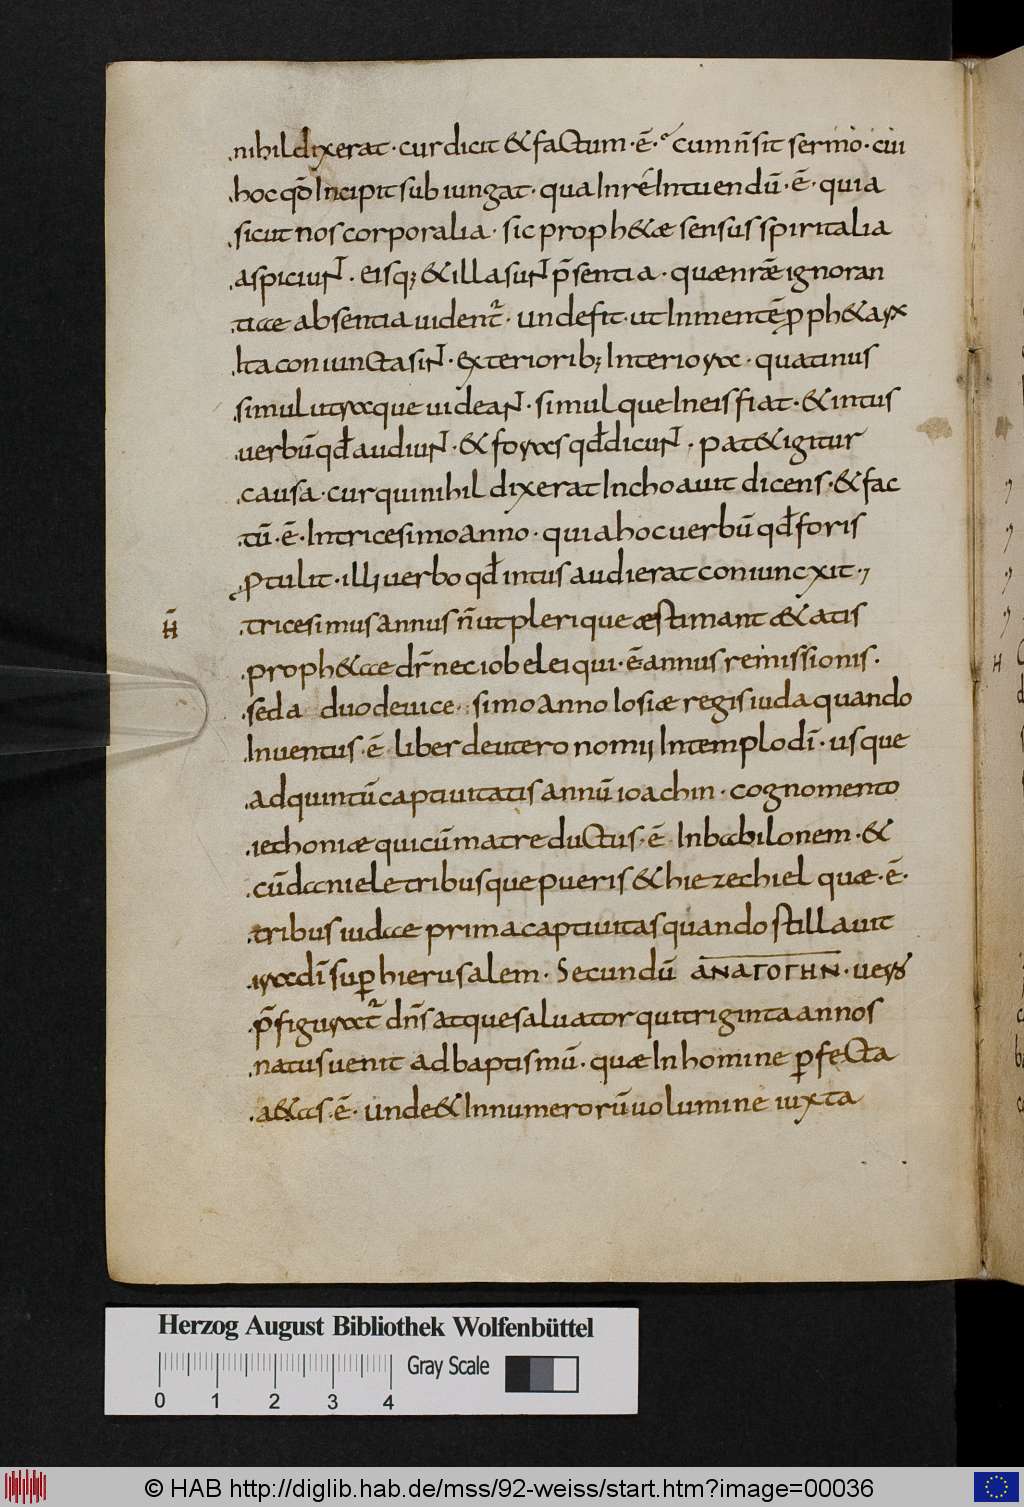 nihil dixerat · cur dicit & factum · ē · cum n̄ sit sermo · cui
hoc qđ Incipit sub iungat · qua In rē Intuendū · ē · quia
sicut nos corporalia · sic proph&æ sensus spiritalia
aspiciunt · eisq; & illa sunt p̄sentia · quæ nr̄æ ignoran
tiae absentia uident̄ · unde fit · ut In mentē ꝓph&arū
Ita coniuncta sint · exteriorib; Interiora · quatinus
simul utraque uideant · simulque In eis fiat · & intus
uerbū qđ audiunt · & foras qđ dicunt · pat& igitur
causa · cur qui nihil dixerat Inchoauit dicens · & fac
tū · ē · In tricesimo anno · quia hoc uerbū qđ foris
ꝓtulit · illi uerbo qđ intus audierat coniuncxit ·
H̄ tricesimus annus n̄ ut plerique æstimant æ&atis
proph&ae dr̄ nec iobelei qui · ē annus remissionis ·
sed a duodeuice simo anno Iosiæ regis iuda quando
Inuentus · ē liber deuteronomii In templo dī · usque
ad quintū captiuitatis annū ioachin · cognomento
iechoniæ qui cū matre ductus · ē In babilonem · &
cū daniele tribusque pueris & hiezechiel quæ · ē ·
tribus iudae prima captiuitas quando stillauit
ira dī suꝑ hierusalem · Secundū ΑΝΑΓΟΓΗΝ · uero
p̄figurat̄ dn̄s atque saluator qui triginta annos
natus uenit ad baptismū · quæ In homine ꝑfecta
a&as · ē · unde & In numerorū uolumine iuxta
H
Herzog August Bibliothek Wolfenbüttel
Gray Scale
0 1 2 3 4
© HAB http://diglib.hab.de/mss/92-weiss/start.htm?image=00036